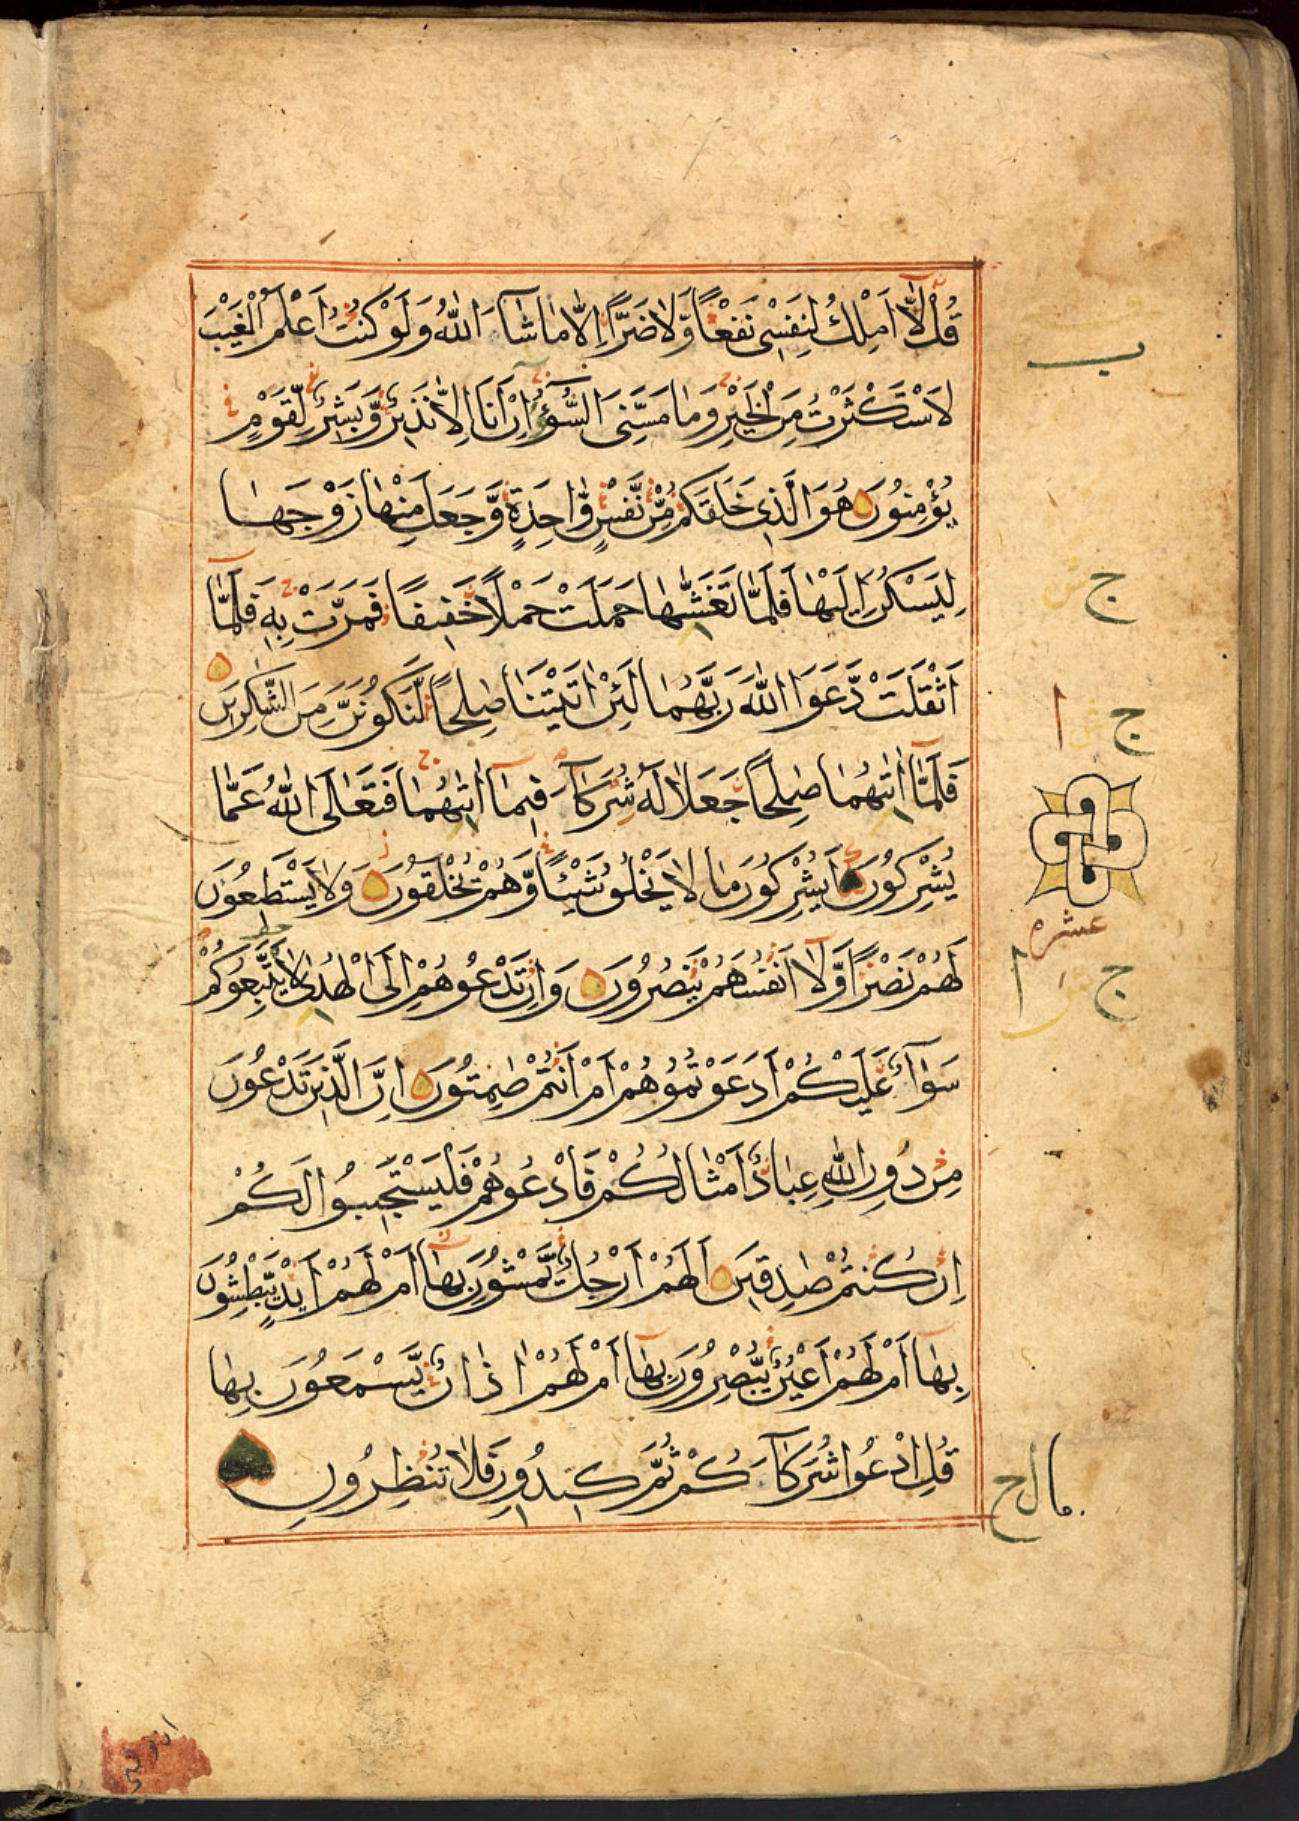 قُلْ لَّا اَمْلِكُ لِنَفْسِى نَفْعًا وَّلَا ضَرًّا اِلَّا مَا شَآءَ اللّٰهُ وَلَوْ كُنْتُ اَعْلَمُ الْغَيْبَ
لَاسْتَكْثَرْتُ مِنَ الْخَيْرِ وَمَا مَسَّنِىَ السُّوْٓءُ اِنْ اَنَا اِلَّا نَذِيْرٌ وَّبَشِيْرٌ لِّقَوْمٍ
يُؤْمِنُوْنَ هُوَ الَّذِىْ خَلَقَكُمْ مِّنْ نَّفْسٍ وَّاحِدَةٍ وَّجَعَلَ مِنْهَا زَوْجَهَا
لِيَسْكُنَ اِلَيْهَا فَلَمَّا تَغَشّٰىهَا حَمَلَتْ حَمْلًا خَفِيْفًا فَمَرَّتْ بِهٖ فَلَمَّآ
اَثْقَلَتْ دَّعَوَا اللّٰهَ رَبَّهُمَا لَئِنْ اٰتَيْتَنَا صٰلِحًا لَّنَكُوْنَنَّ مِنَ الشّٰكِرِيْنَ
فَلَمَّآ اٰتٰىهُمَا صٰلِحًا جَعَلَا لَهٗ شُرَكَآءَ فِيْمَآ اٰتٰىهُمَا فَتَعَالَى اللّٰهُ عَمَّا
يُشْرِكُوْنَ اَيُشْرِكُوْنَ مَا لَا يَخْلُقُ شَيْئًا وَّهُمْ يُخْلَقُوْنَ وَلَا يَسْتَطِعُوْنَ
لَهُمْ نَصْرًا وَّلَآ اَنْفُسَهُمْ يَنْصُرُوْنَ وَاِنْ تَدْعُوْهُمْ اِلَى الْهُدٰى لَا يَتَّبِعُوْكُمْ
سَوَآءٌ عَلَيْكُمْ اَدَعَوْتُمُوْهُمْ اَمْ اَنْتُمْ صٰمِتُوْنَ اِنَّ الَّذِيْنَ تَدْعُوْنَ
مِنْ دُوْنِ اللّٰهِ عِبَادٌ اَمْثَالُكُمْ فَادْعُوْهُمْ فَلْيَسْتَجِيْبُوْا لَكُمْ
اِنْ كُنْتُمْ صٰدِقِيْنَ اَلَهُمْ اَرْجُلٌ يَّمْشُوْنَ بِهَآ اَمْ لَهُمْ اَيْدٍ يَّبْطِشُوْنَ
بِهَآ اَمْ لَهُمْ اَعْيُنٌ يُّبْصِرُوْنَ بِهَآ اَمْ لَهُمْ اٰذَانٌ يَّسْمَعُوْنَ بِهَا
قُلِ ادْعُوْا شُرَكَآءَكُمْ ثُمَّ كِيْدُوْنِ فَلَا تُنْظِرُوْنِ
ج
ج
عشره
ج